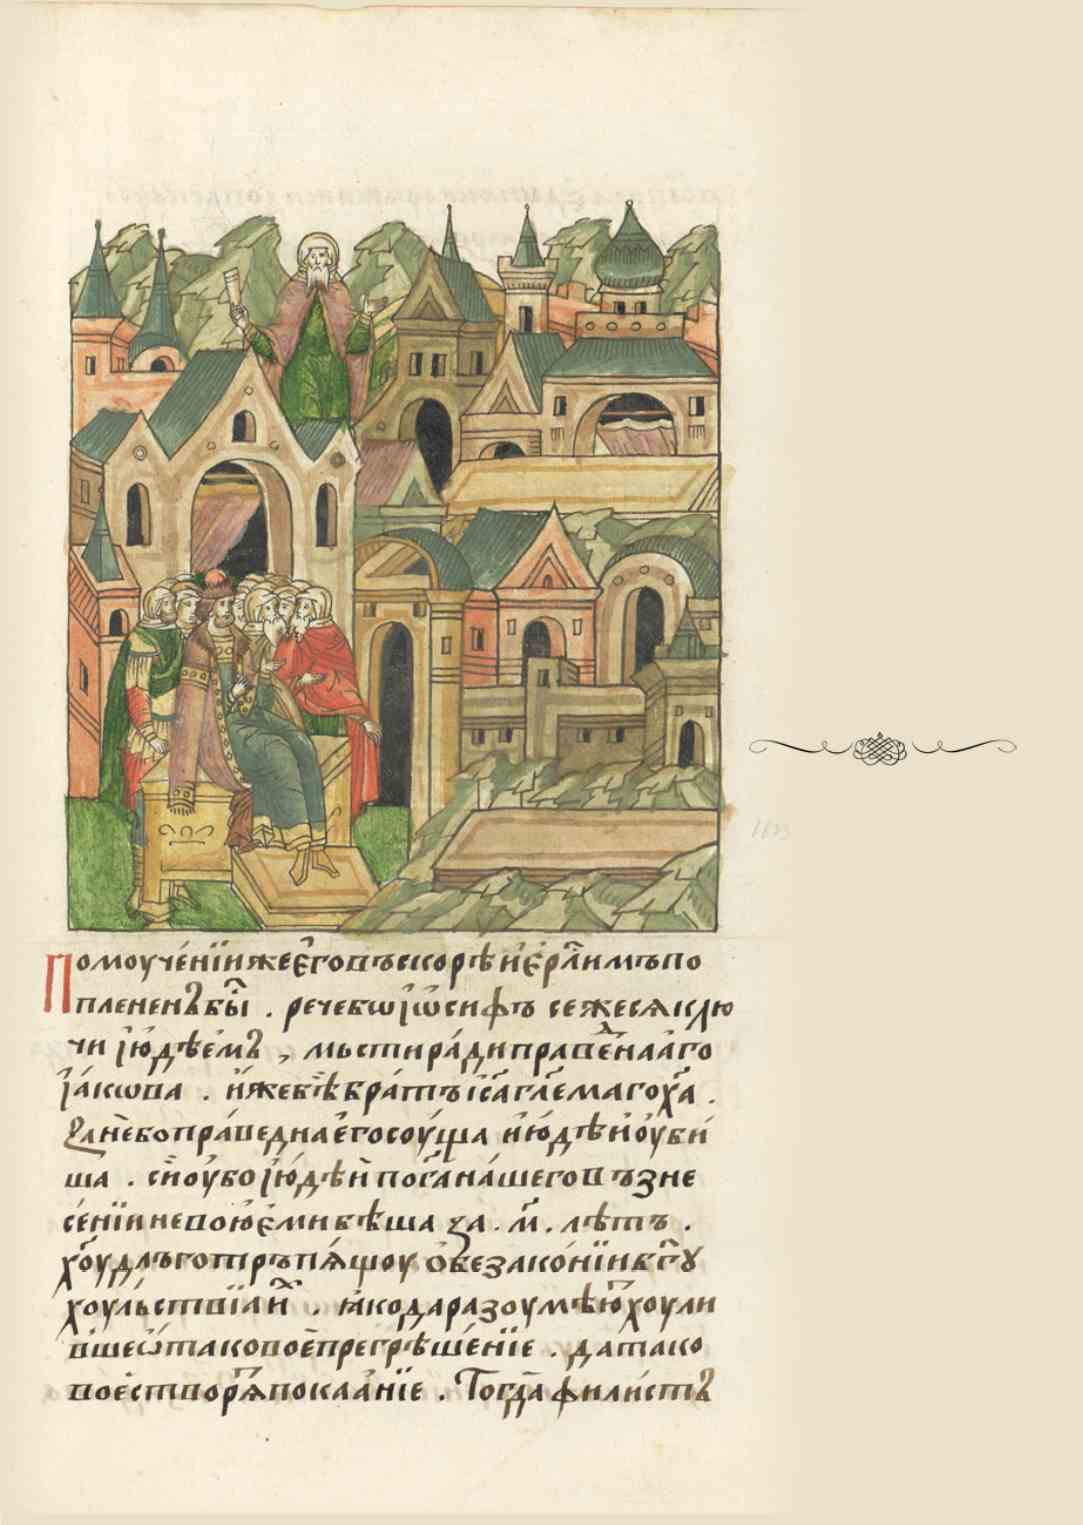 По моученїи же е҆го въскорѣ и҆ е҆рл҃имъ по
плененъ бы̑ . рече бо і҆ѡ҆сифъ се же сѧ клю
чи і҆ю҆дѣемъ , мьсти ра́ди праве́наа̑го
і҆а́кѡва . и҆же бѣ̀ бра́тъ і҃са гл҃емаго х҃а .
е҆лне́бо пра́ведна е҆го соу́ща и҆ю҆дѣи оу҆би́
ша . сі́и оу҆бо і҆ю҆дѣи по г҃а на́шего възне
се́нїи не вою̀ е҆ми бѣша за . м҃ . лѣтъ .
х҃оу длъготръпѧ́щоу о҆ безако́нїи б҃гу
хоу́льствїа и҆̑ . ꙗ҆ко да разоумѣю̑ хоули
вше ѡ҆ таково́е прегрѣше́нїе . да тако
во́е створѧ̑ покаа́нїе . Тогда̀ фили́стъ